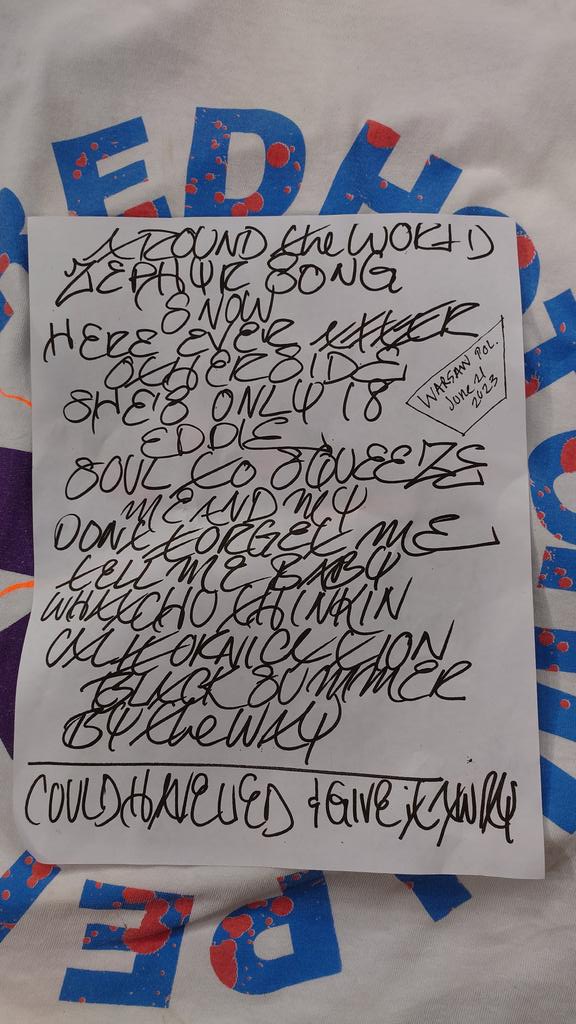 REDHOT
AROUND the WORLD
ZEPHYR SONG
SNOW
HERE EVER AFTER
OTHERSIDE
SHE'S ONLY 18
EDDIE
SOUL to SQUEEZE
ME AND MY
DONT FORGET ME
tELL ME BABY
WHATCHU THINKIN
CALIFORNICATION
BLACK SUMMER
BY the WAY
COULD HAVE LIED + GIVE it AWAY
WARSAW POL.
June 21
2023